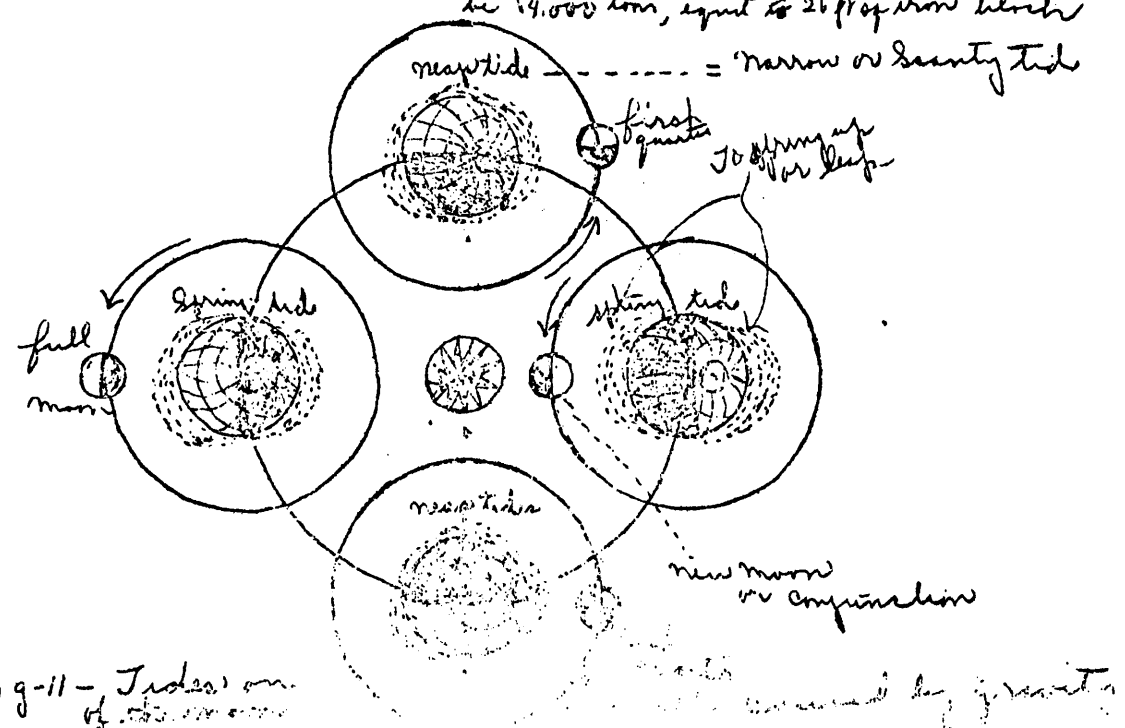 be 14.000 tons, equal to 26 ft of iron block
neap tide - - - - - - = Narrow or Scanty tide
first
quarter
To spring up
or leap
Spring tide
spring tide
full
moon
neap tides
new moon
or conjunction
g-11-, Tides on
of the moon
caused by gravity